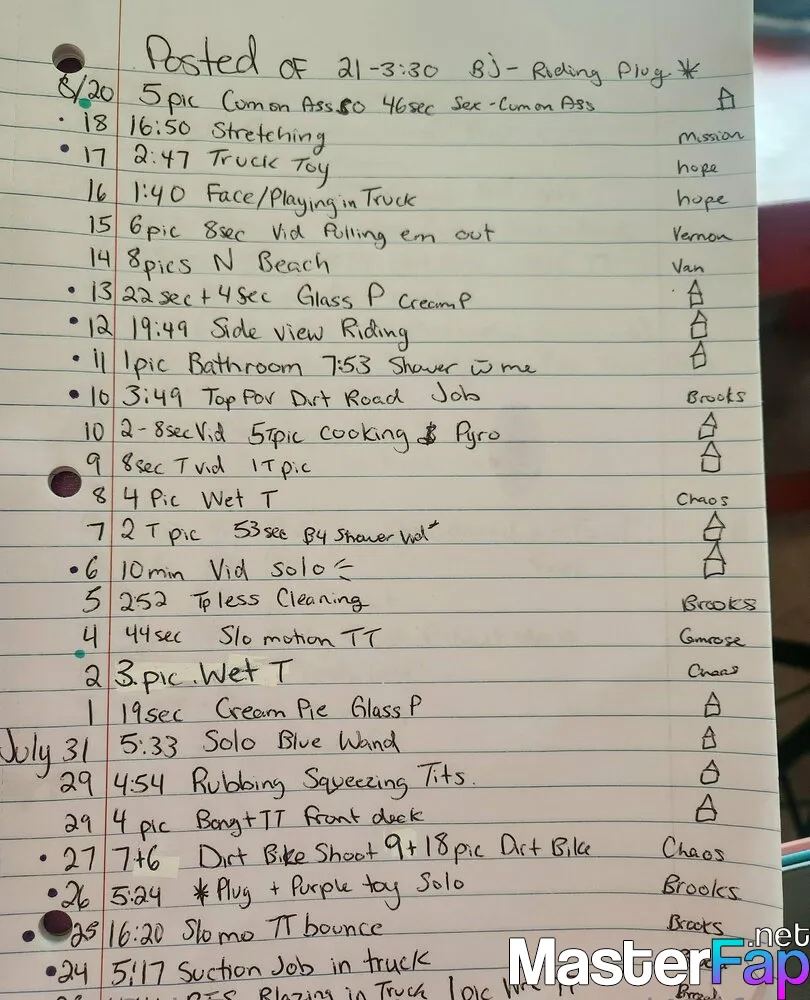 Posted OF 21-3:30 BJ- Riding Plug *
8/20 5pic Cum on Ass 46sec Sex-Cum on Ass
18 16:50 Stretching Mission
17 2:47 Truck Toy hope
16 1:40 Face/Playing in Truck hope
15 6pic 8sec Vid Pulling em out Vernon
14 8pics N Beach Van
13 22sec + 4Sec Glass P CreamP
12 19:49 Side view Riding
11 1pic Bathroom 7:53 Shower w̄ me
10 3:49 Top Pov Dirt Road Job Brooks
10 2-8secVid 5Tpic Cooking & Pyro
9 8sec T vid 1T pic
8 4 Pic Wet T Chaos
7 2 T pic 53sec B4 Shower Vid*
6 10min Vid Solo
5 252 Tpless Cleaning Brooks
4 44sec Slo motion TT Camrose
2 3.pic.Wet T Chaos
1 19sec Cream Pie Glass P
July 31 5:33 Solo Blue Wand
29 4:54 Rubbing Squeezing Tits.
29 4 pic Bong+TT front deck
27 7+6 Dirt Bike Shoot 9+18pic Dirt Bike Chaos
26 5:24 *Plug + Purple toy Solo Brooks
25 16:20 Slomo TT bounce Brooks
24 5:17 Suction Job in truck
Blazing in Truck 1pic
MasterFap.net